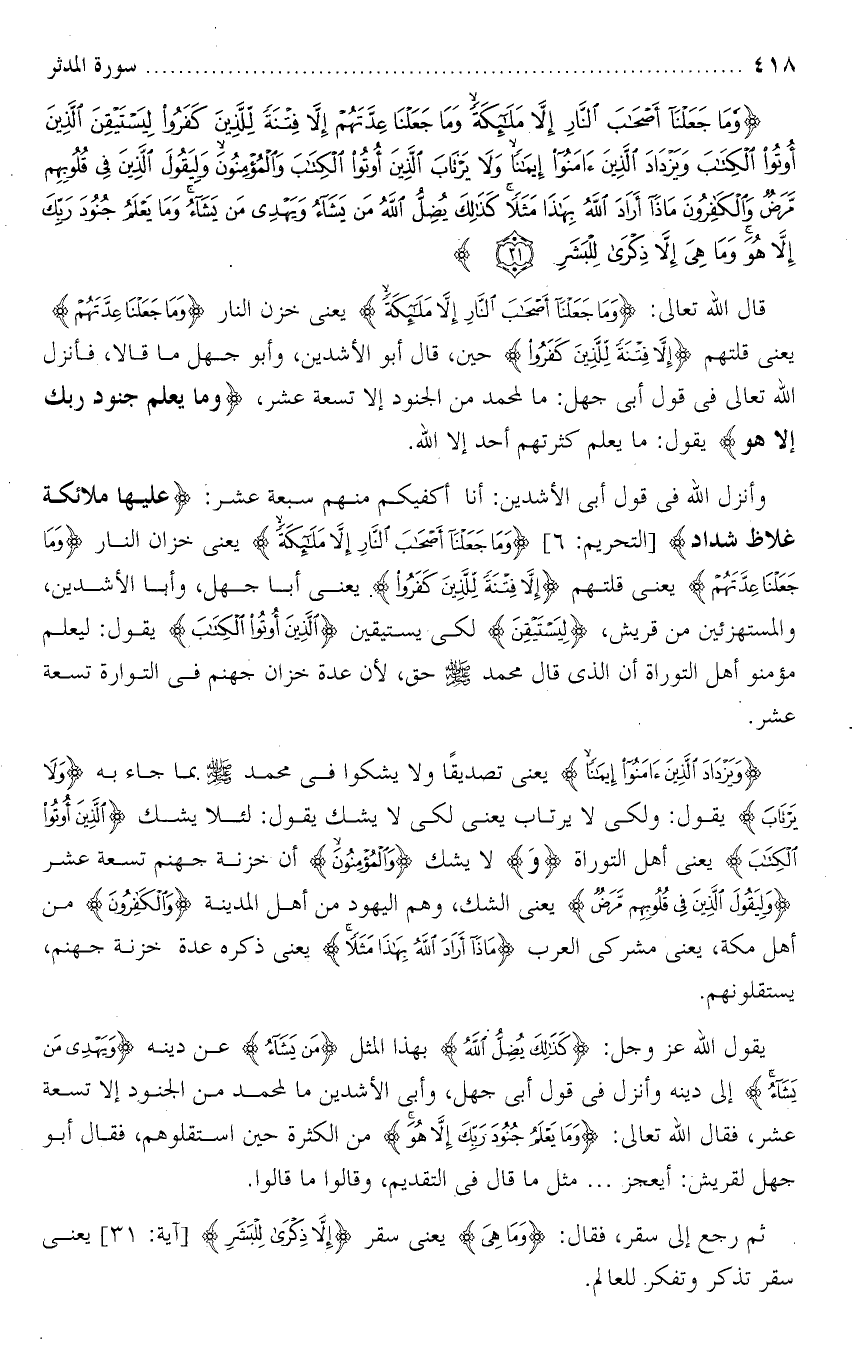 ٤١٨ ........................................................................ سورة المدثر
﴿وَمَا جَعَلْنَآ أَصْحَٰبَ ٱلنَّارِ إِلَّا مَلَٰٓئِكَةً ۙ وَمَا جَعَلْنَا عِدَّتَهُمْ إِلَّا فِتْنَةً لِّلَّذِينَ كَفَرُوا۟ لِيَسْتَيْقِنَ ٱلَّذِينَ
أُوتُوا۟ ٱلْكِتَٰبَ وَيَزْدَادَ ٱلَّذِينَ ءَامَنُوٓا۟ إِيمَٰنًا ۙ وَلَا يَرْتَابَ ٱلَّذِينَ أُوتُوا۟ ٱلْكِتَٰبَ وَٱلْمُؤْمِنُونَ ۙ وَلِيَقُولَ ٱلَّذِينَ فِى قُلُوبِهِم
مَّرَضٌ وَٱلْكَٰفِرُونَ مَاذَآ أَرَادَ ٱللَّهُ بِهَٰذَا مَثَلًا ۚ كَذَٰلِكَ يُضِلُّ ٱللَّهُ مَن يَشَآءُ وَيَهْدِى مَن يَشَآءُ ۚ وَمَا يَعْلَمُ جُنُودَ رَبِّكَ
إِلَّا هُوَ ۚ وَمَا هِىَ إِلَّا ذِكْرَىٰ لِلْبَشَرِ ٣١ ﴾
قال الله تعالى: ﴿وَمَا جَعَلْنَآ أَصْحَٰبَ ٱلنَّارِ إِلَّا مَلَٰٓئِكَةً ۙ﴾ يعنى خزن النار ﴿وَمَا جَعَلْنَا عِدَّتَهُمْ﴾
يعنى قلتهم ﴿إِلَّا فِتْنَةً لِّلَّذِينَ كَفَرُوا۟﴾ حين، قال أبو الأشدين، وأبو جهل ما قالا، فأنزل
الله تعالى فى قول أبى جهل: ما لمحمد من الجنود إلا تسعة عشر، ﴿وما يعلم جنود ربك
إلا هو﴾ يقول: ما يعلم كثرتهم أحد إلا الله.
وأنزل الله فى قول أبى الأشدين: أنا أكفيكم منهم سبعة عشر: ﴿عليها ملائكة
غلاظ شداد﴾ [التحريم: ٦] ﴿وَمَا جَعَلْنَآ أَصْحَٰبَ ٱلنَّارِ إِلَّا مَلَٰٓئِكَةً ۙ﴾ يعنى خزان النار ﴿وَمَا
جَعَلْنَا عِدَّتَهُمْ﴾ يعنى قلتهم ﴿إِلَّا فِتْنَةً لِّلَّذِينَ كَفَرُوا۟﴾. يعنى أبا جهل، وأبا الأشدين،
والمستهزئين من قريش، ﴿لِيَسْتَيْقِنَ﴾ لكى يستيقين ﴿ٱلَّذِينَ أُوتُوا۟ ٱلْكِتَٰبَ﴾ يقول: ليعلم
مؤمنو أهل التوراة أن الذى قال محمد ﷺ حق، لأن عدة خزان جهنم فى التوارة تسعة
عشر.
﴿وَيَزْدَادَ ٱلَّذِينَ ءَامَنُوٓا۟ إِيمَٰنًا ۙ﴾ يعنى تصديقًا ولا يشكوا فى محمد ﷺ بما جاء به ﴿وَلَا
يَرْتَابَ﴾ يقول: ولكى لا يرتاب يعنى لكى لا يشك يقول: لئلا يشك ﴿ٱلَّذِينَ أُوتُوا۟
ٱلْكِتَٰبَ﴾ يعنى أهل التوراة ﴿وَ﴾ لا يشك ﴿وَٱلْمُؤْمِنُونَ ۙ﴾ أن خزنة جهنم تسعة عشر
﴿وَلِيَقُولَ ٱلَّذِينَ فِى قُلُوبِهِم مَّرَضٌ﴾ يعنى الشك، وهم اليهود من أهل المدينة ﴿وَٱلْكَٰفِرُونَ﴾ من
أهل مكة، يعنى مشركى العرب ﴿مَاذَآ أَرَادَ ٱللَّهُ بِهَٰذَا مَثَلًا ۚ﴾ يعنى ذكره عدة خزنة جهنم،
يستقلونهم.
يقول الله عز وجل: ﴿كَذَٰلِكَ يُضِلُّ ٱللَّهُ﴾ بهذا المثل ﴿مَن يَشَآءُ﴾ عن دينه ﴿وَيَهْدِى مَن
يَشَآءُ ۚ﴾ إلى دينه وأنزل فى قول أبى جهل، وأبى الأشدين ما لمحمد من الجنود إلا تسعة
عشر، فقال الله تعالى: ﴿وَمَا يَعْلَمُ جُنُودَ رَبِّكَ إِلَّا هُوَ ۚ﴾ من الكثرة حين استقلوهم، فقال أبو
جهل لقريش: أيعجز ... مثل ما قال فى التقديم، وقالوا ما قالوا.
ثم رجع إلى سقر، فقال: ﴿وَمَا هِىَ﴾ يعنى سقر ﴿إِلَّا ذِكْرَىٰ لِلْبَشَرِ﴾ [آية: ٣١] يعنى
سقر تذكر وتفكر للعالم.